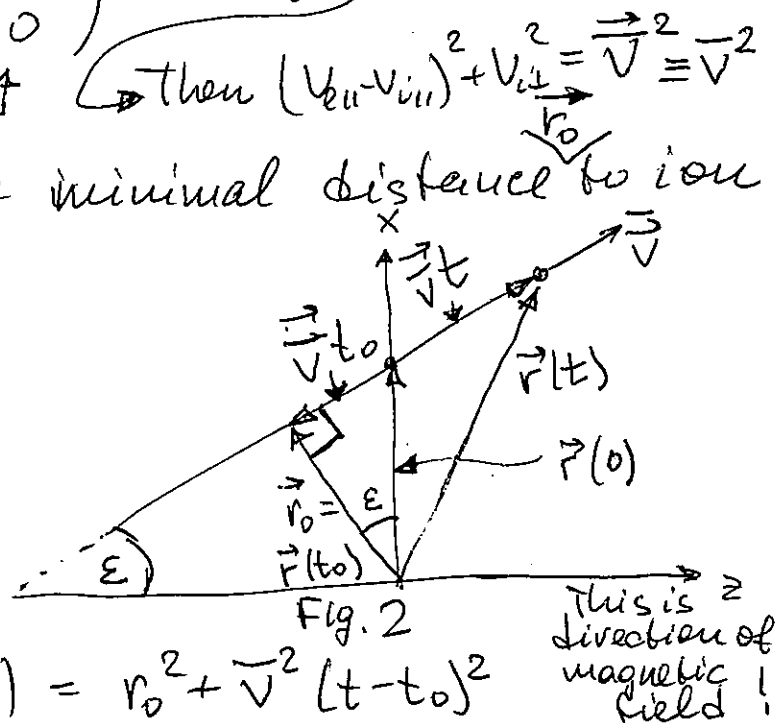 0 )
Then (V_{e||}-V_{i||})^2 + V_{i⊥}^2 = \vec{V}^2 ≡ \bar{V}^2
\vec{r_0}
minimal distance to ion
x
\vec{V}t
\vec{V}
\vec{V}t_0
\vec{r}(t)
\vec{r}(0)
\vec{r_0} =
ε
\vec{r}(t_0)
ε
z
Fig. 2
This is
direction of
magnetic
field !
) = r_0^2 + \bar{V}^2 (t-t_0)^2